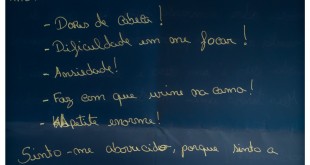 - Dores de cabeça!
- Dificuldade em me focar!
- Ansiedade!
- Faz com que urine na cama!
- Apetite enorme!
Sinto-me aborrecido, porque sinto a